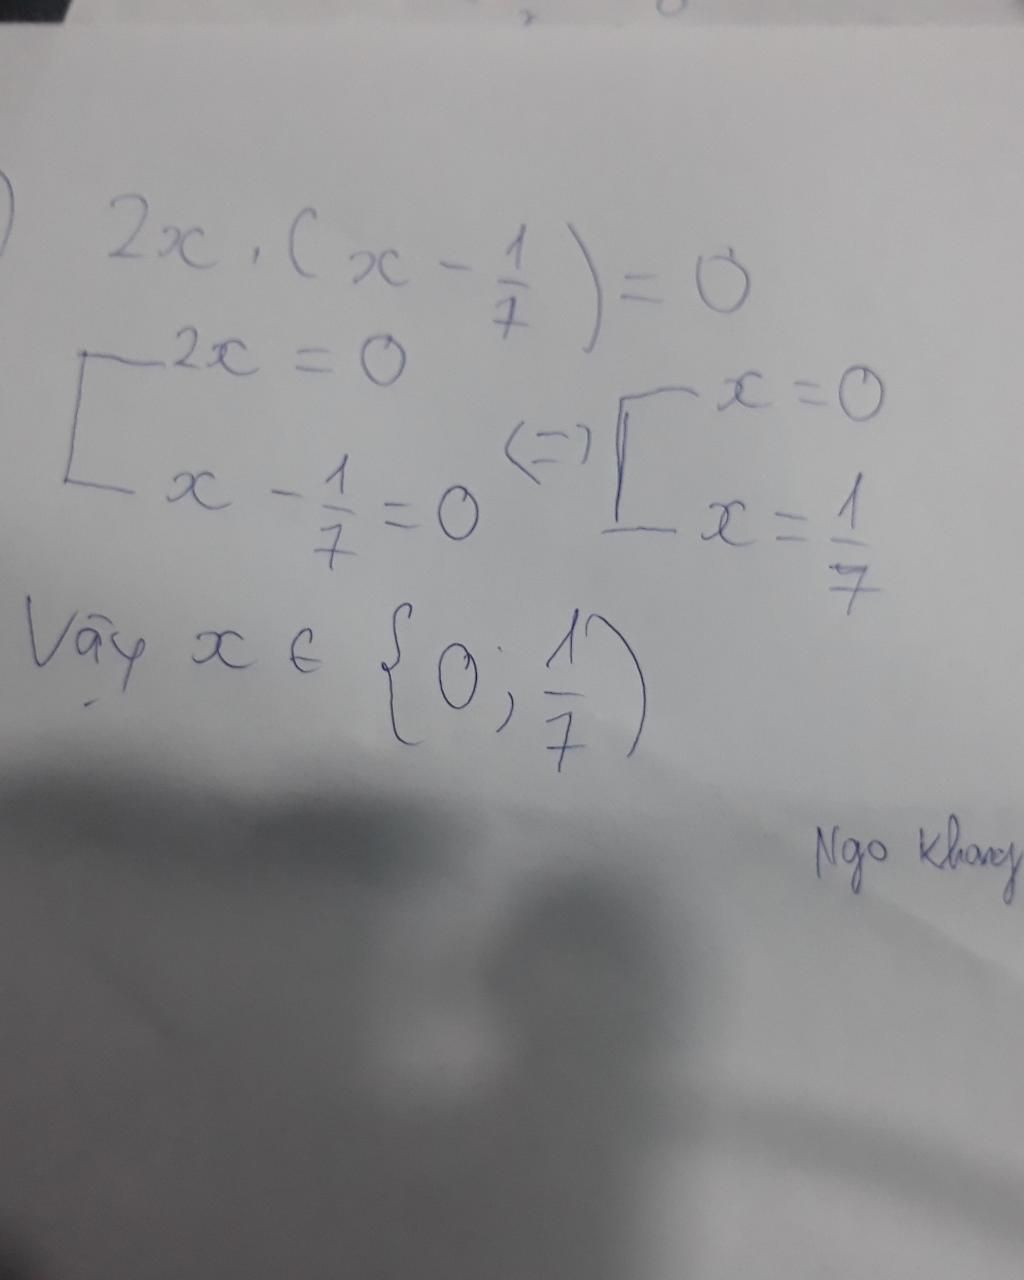 ) 2x . (x - 1/7) = 0
[ 2x = 0
x - 1/7 = 0 <=> [ x = 0
x = 1/7
Vậy x ∈ {0; 1/7)
Ngo Khang